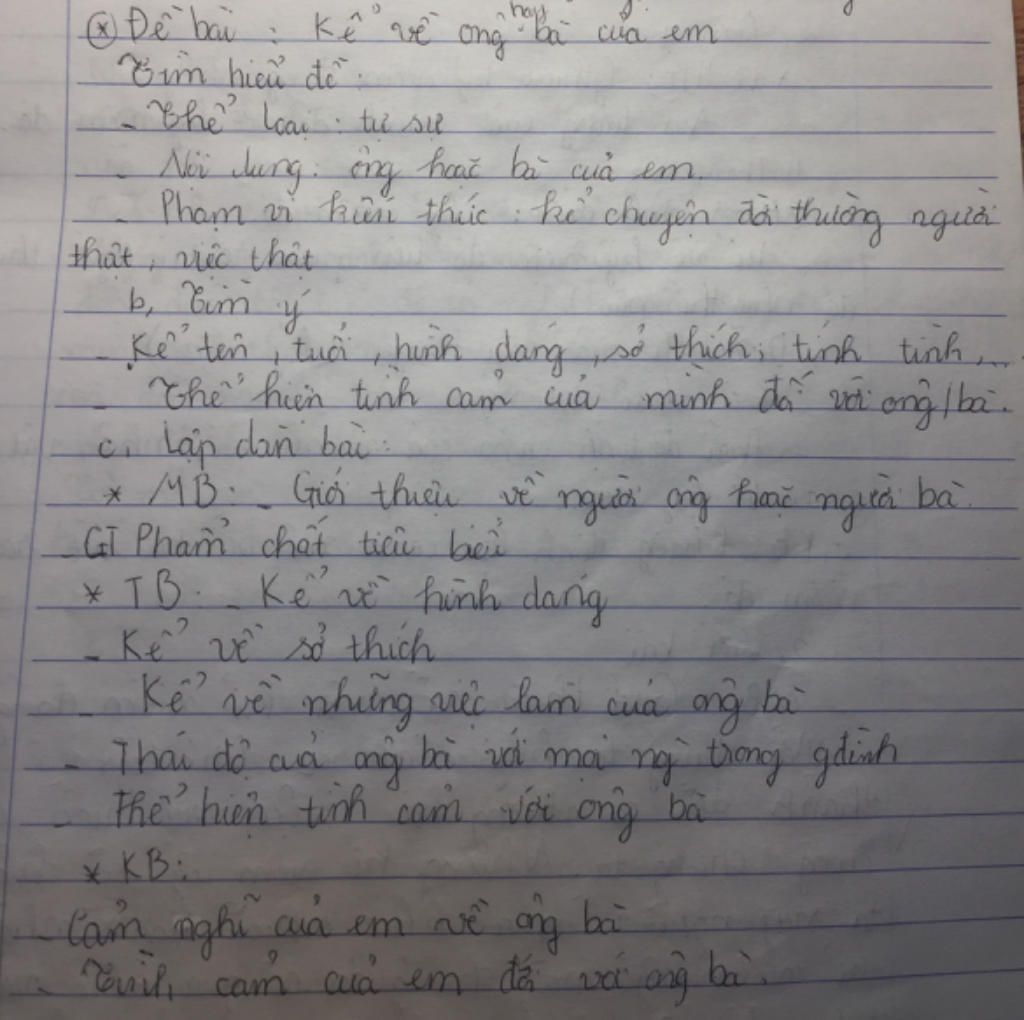 ⊛ Đề bài : Kể về ông hay bà của em
Tìm hiểu đề :
- Thể loại : tự sự
- Nội dung : ông hoặc bà của em.
- Phạm vi kiến thức : kể chuyện đời thường người
thật, việc thật
b, Tìm ý
- Kể tên, tuổi, hình dáng, sở thích, tính tình,...
- Thể hiện tình cảm của mình đối với ông/bà.
c, Lập dàn bài :
* MB : - Giới thiệu về người ông hoặc người bà.
- GT Phẩm chất tiêu biểu
* TB : - Kể về hình dáng
- Kể về sở thích
- Kể về những việc làm của ông bà
- Thái độ của ông bà với mọi ng` trong gđình
- Thể hiện tình cảm với ông bà
* KB :
- Cảm nghĩ của em về ông bà
- Tình cảm của em đối với ông bà.